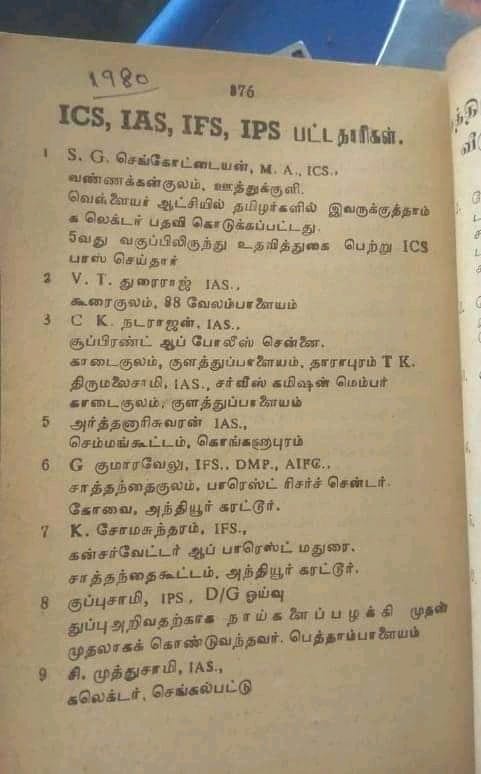 1980
376
ICS, IAS, IFS, IPS பட்டதாரிகள்.
1 S. G. செங்கோட்டையன், M. A., ICS.,
வண்ணக்கன்குலம், ஊத்துக்குளி.
வெள்ளையர் ஆட்சியில் தமிழர்களில் இவருக்குத்தாம்
கலெக்டர் பதவி கொடுக்கப்பட்டது.
5வது வகுப்பிலிருந்து உதவித்துகை பெற்று ICS
பாஸ் செய்தார்
2 V. T. துரைராஜ் IAS.,
கூரைகுலம், 88 வேலம்பாளையம்
3 C K. நடராஜன், IAS.,
சூப்பிரண்ட் ஆப் போலீஸ் சென்னை.
காடைகுலம், குளத்துப்பாளையம், தாராபுரம் T K.
திருமலைசாமி, IAS., சர்வீஸ் கமிஷன் மெம்பர்
காடைகுலம், குளத்துப்பாளையம்
5 அர்த்தனாரிசுவரன் IAS.,
செம்மங்கூட்டம், கொங்கணாபுரம்
6 G குமாரவேலு, IFS., DMP., AIFC.,
சாத்தந்தைகுலம், பாரெஸ்ட் ரிசர்ச் சென்டர்.
கோவை, அந்தியூர் கரட்டூர்.
7 K. சோமசுந்தரம், IFS.,
கன்சர்வேட்டர் ஆப் பாரெஸ்ட் மதுரை.
சாத்தந்தைகூட்டம், அந்தியூர் கரட்டூர்.
8 குப்புசாமி, IPS, D/G ஓய்வு
துப்புஅறிவதற்காக நாய்களைப்பழக்கி முதன்
முதலாகக் கொண்டுவந்தவர். பெத்தாம்பாளையம்
9 சி. முத்துசாமி, IAS.,
கலெக்டர், செங்கல்பட்டு